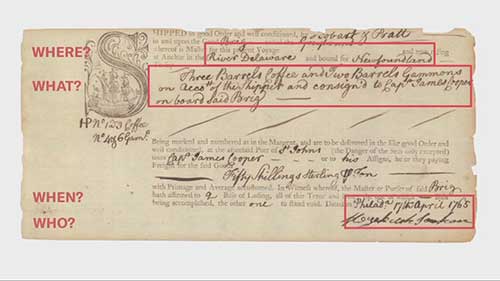 WHERE?
WHAT?
WHEN?
WHO?
SHIPPED in good Order and well conditioned, by & Pratt
in and upon the Good Brig
whereof is Master for this present Voyage
at Anchor in the River Delaware and bound for Newfoundland
Three Barrels Coffee and Two Barrels Gammons
on Acco.t of the Shipper and consign'd to Cap.t James Cooper
on board said Brig
HP No 1 a 3 Coffee
No 4 & 5 Gam.s
Being marked and numbered as in the Margent, and are to be delivered in the like good Order and
well conditioned, at the aforesaid Port of St Johns (the Danger of the Seas only excepted)
unto Cap.t James Cooper or to his Assigns, he or they paying
Freight for the said Goods
Fifty Shillings Sterling Ton
with Primage and Average accustomed. In Witness whereof, the Master or Purser of said Brig
hath affirmed to 2 Bills of Lading, all of this Tenor and
being accomplished, the other one to stand void. Dated in
Philad.a 17th April 1765